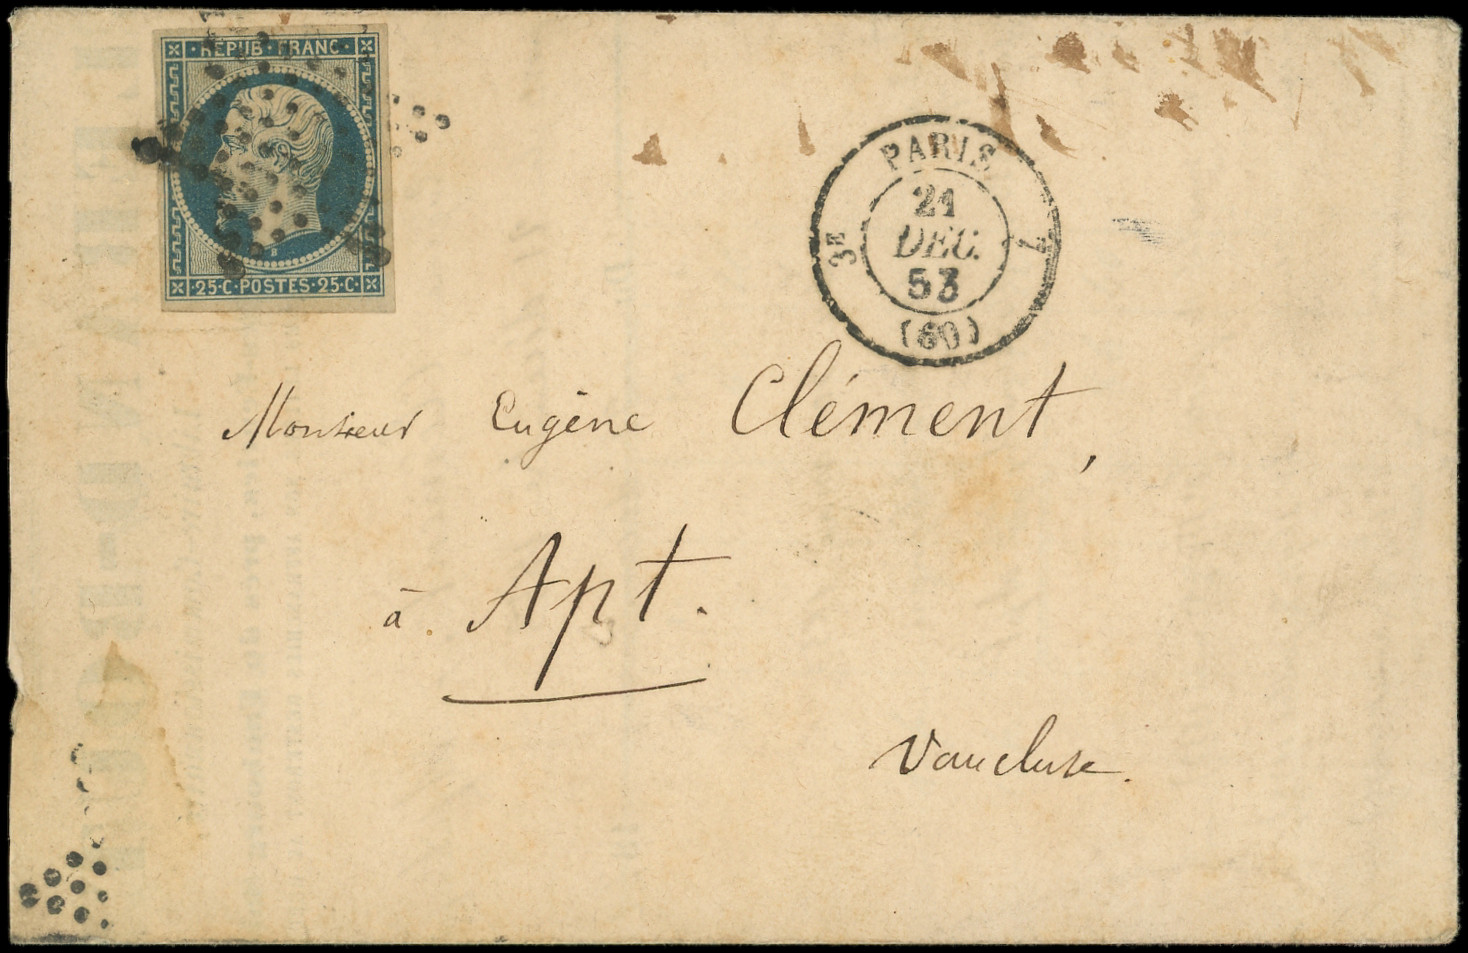 REPUB·FRANC·
B
25·C·POSTES·25·C·
PARIS
3E
21
DEC.
53
(60)
Monsieur Eugène Clément,
à Apt.
Vaucluse.